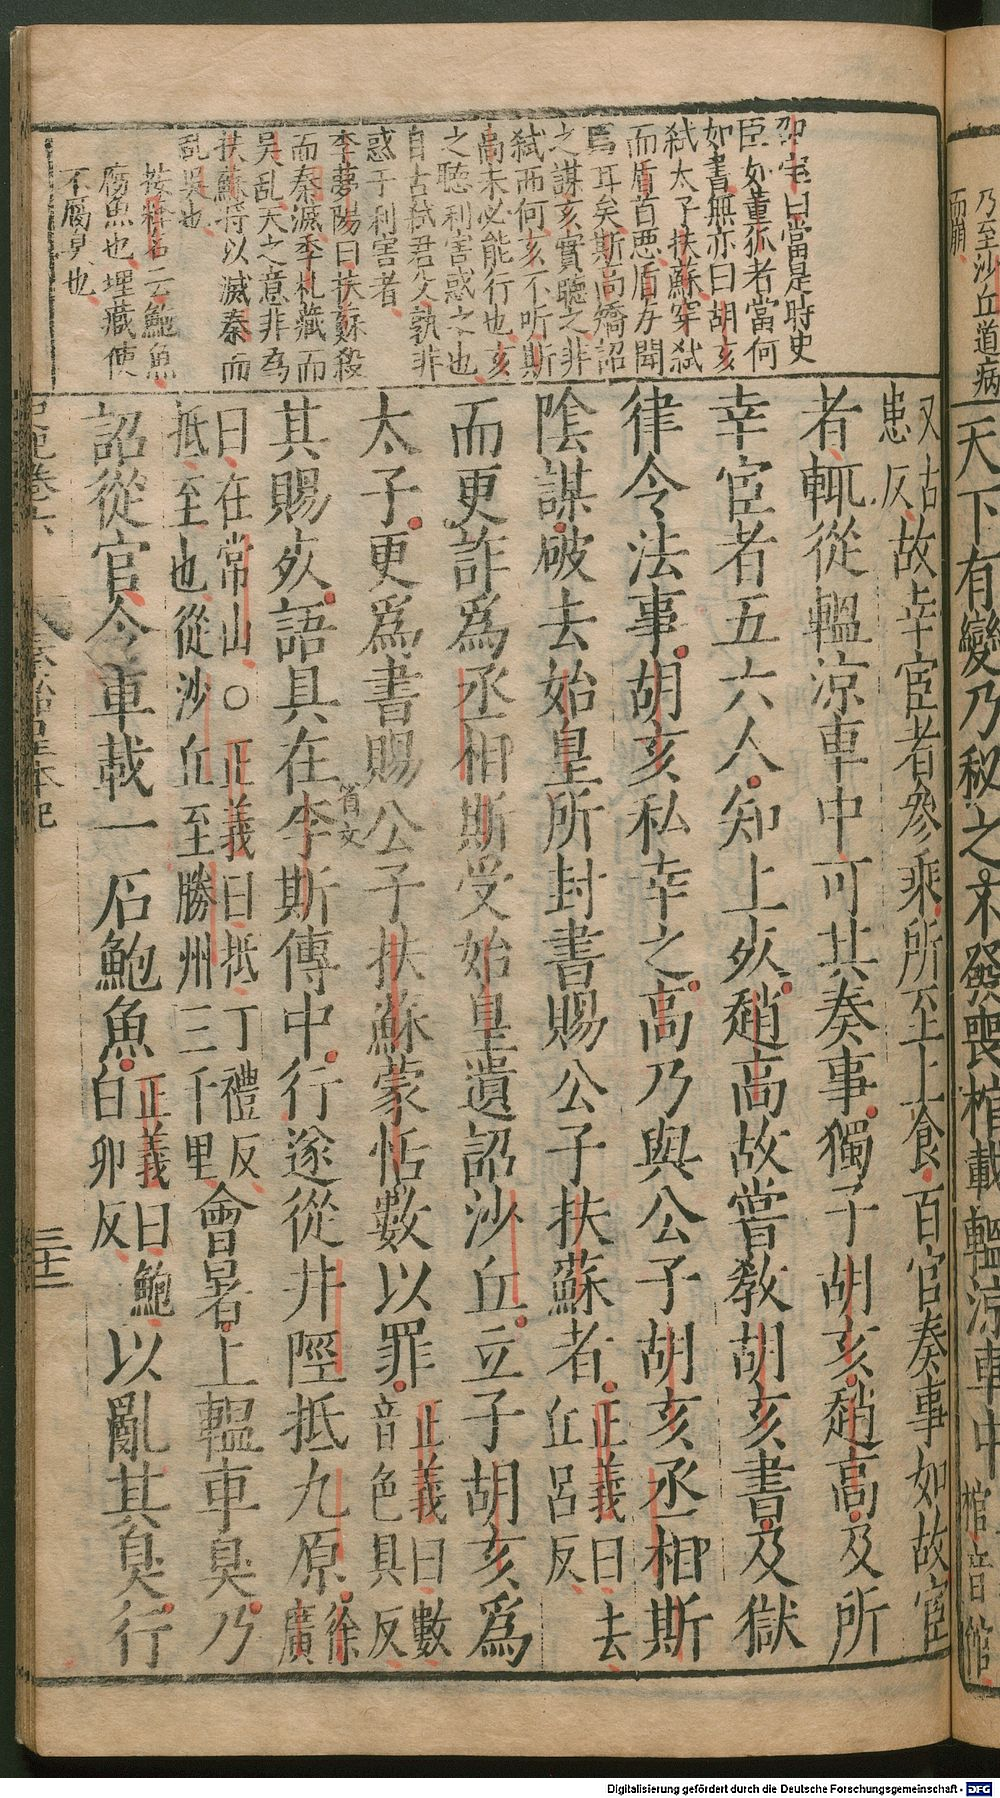 乃至沙丘道病
而崩
天下有變乃秘之不發喪棺載轀涼車中棺音館
邵寶曰當是時史
臣如董狐者當何
如書無亦曰胡亥
弑太子扶蘇穽弑
而盾首惡盾方聞
焉耳矣斯高矯詔
之謀亥實聽之非
弑而何亥不听斯
高未必能行也亥
之聽利害惑之也
自古弑君父孰非
惑于利害者
李夢陽曰扶蘇殺
而秦滅季札藏而
吳乱天之意非為
扶蘇将以滅秦而
乱吳也
按釋名云鮑魚
腐魚也埋藏使
不腐臭也
又古
患反
故幸宦者參乘所至上食百官奏事如故宦
者輒從轀涼車中可其奏事獨子胡亥趙高及所
幸宦者五六人知上死趙高故嘗敎胡亥書及獄
律令法事胡亥私幸之高乃與公子胡亥丞相斯
陰謀破去始皇所封書賜公子扶蘇者
正義曰去
丘呂反
而更詐爲丞相斯受始皇遺詔沙丘立子胡亥爲
太子更爲書賜公子扶蘇蒙恬數以罪
正義曰數
音色具反
省文
其賜死語具在李斯傳中行遂從井陘抵九原
徐
廣
曰在常山○正義曰抵丁禮反
抵至也從沙丘至勝州三千里
會暑上轀車臭乃
詔從官令車載一石鮑魚
正義曰鮑
白卯反
以亂其臭行
史記卷六
秦始皇本紀
三十二
Digitalisierung gefördert durch die Deutsche Forschungsgemeinschaft - DFG